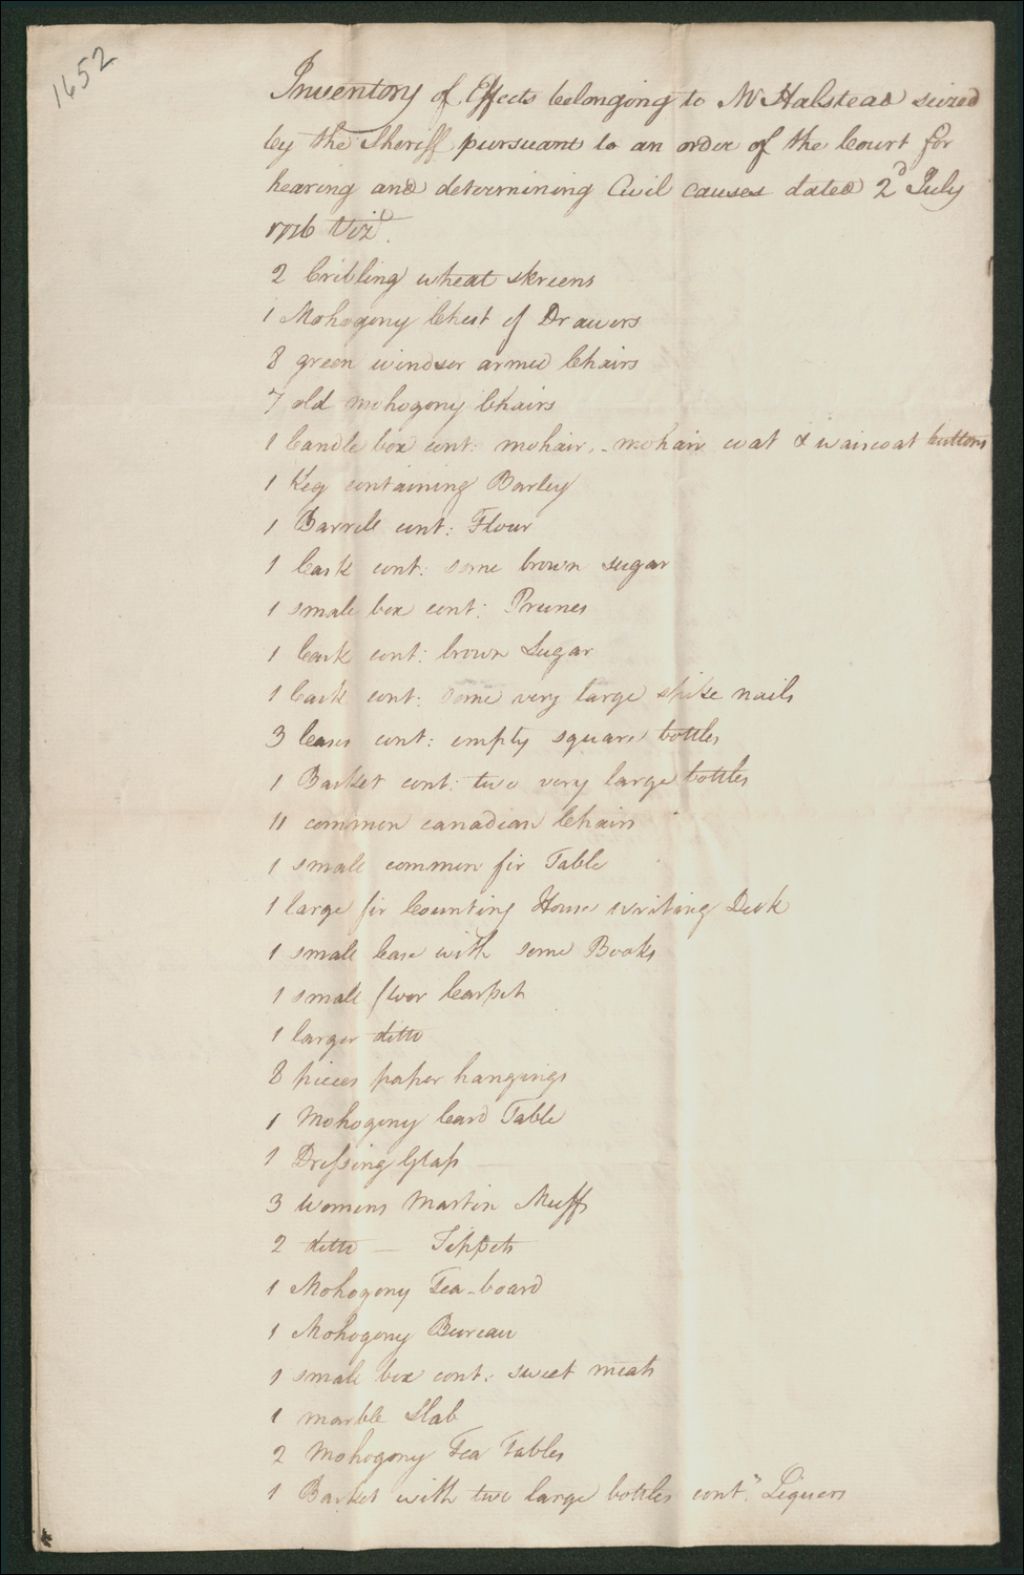 1652
Inventory of Effects belonging to Mr Halstead seized
by the Sheriff pursuant to an order of the Court for
hearing and determining Civil causes dated 2d July
1776 Vizd.
2 Cribling wheat skreens
1 Mohogony Chest of Drawers
8 green windsor armed Chairs
7 old mohogony Chairs
1 Candle box cont: mohair, - mohair coat & waiscoat buttons
1 Keg containing Barley
1 Barrell cont: Flour
1 Cask cont: some brown sugar
1 small box cont: Prunes
1 Cask cont: brown Sugar
1 Cask cont: some very large spike nails
3 Cases cont: empty square bottles
1 Basket cont: two very large bottles
11 common canadian Chairs
1 small common fir Table
1 large fir Counting House writing Desk
1 small Case with some Books
1 small floor Carpet
1 larger ditto
8 pieces paper hangings
1 Mohogony Card Table
1 Dressing Glass
3 womens Martin Muffs
2 ditto — Tippets
1 Mohogony Tea-board
1 Mohogony Bureau
1 small box cont: sweet meats
1 marble Slab
2 Mohogony Tea Tables
1 Basket with two large bottles cont" Liquers